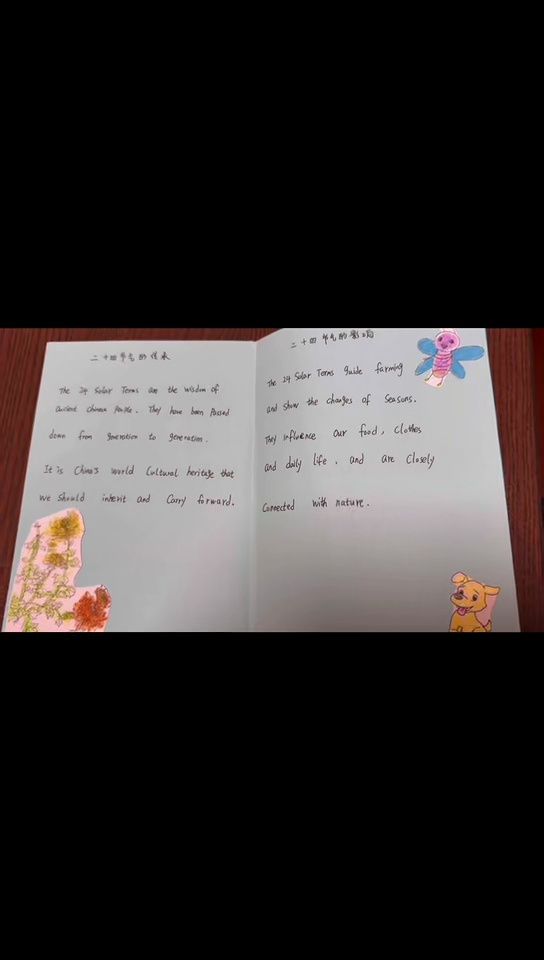 二十四节气的传承
The 24 Solar Terms are the wisdom of
ancient Chinese People. They have been Passed
down from generation to generation.
It is China's world Cultural heritage that
we should inherit and Carry forward.
二十四节气的影响
The 24 Solar Terms guide farming
and show the changes of Seasons.
They influence our food, Clothes
and daily life, and are Closely
Connected with nature.